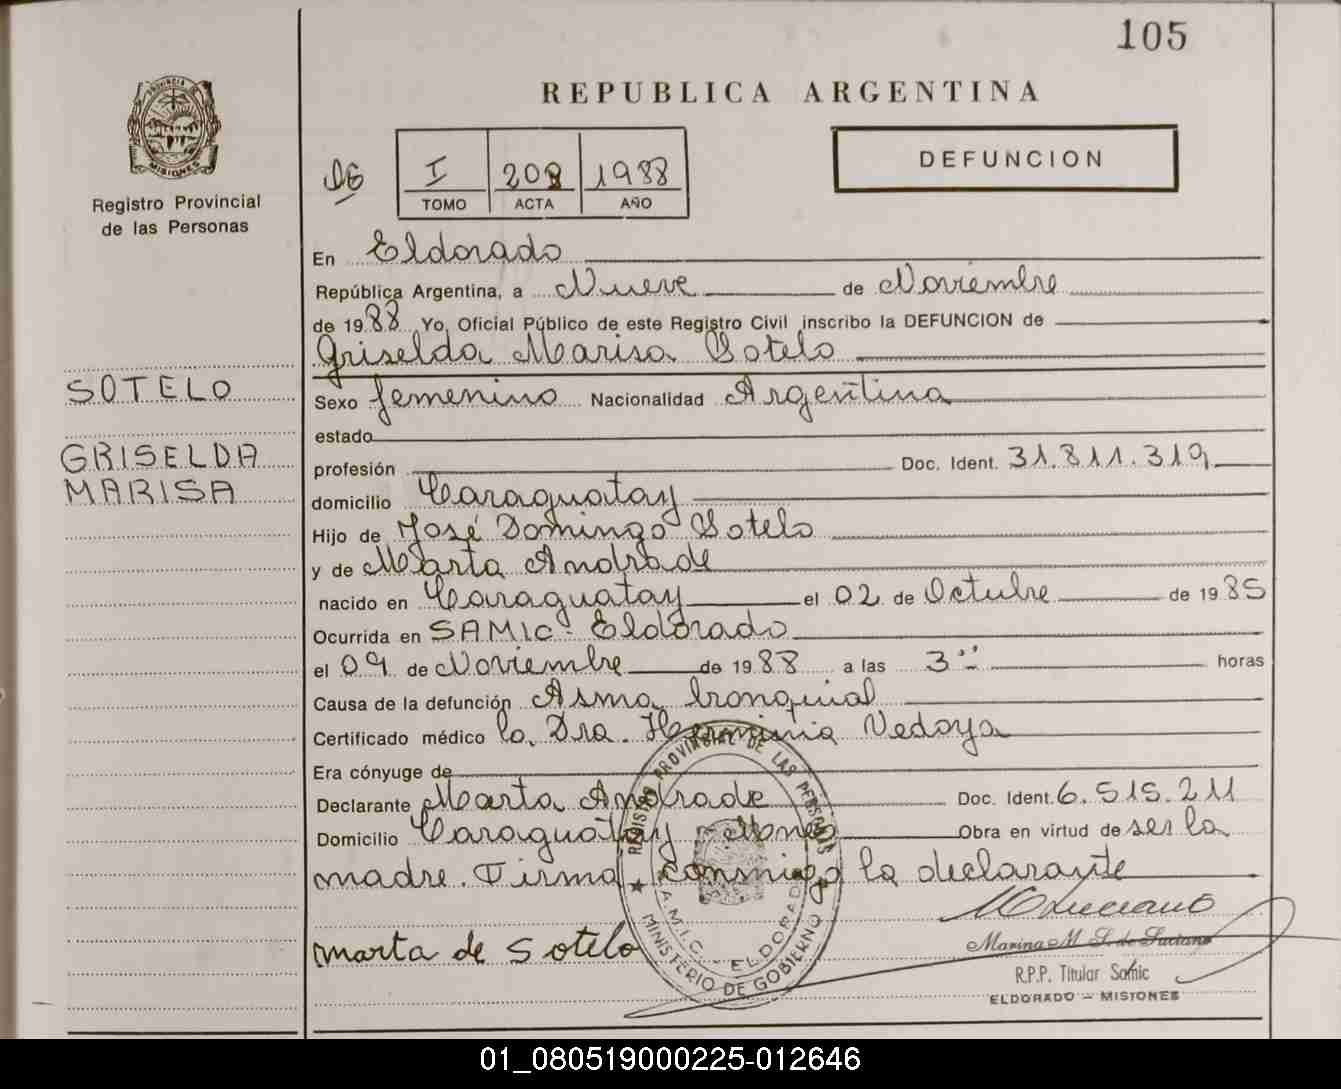 105
REPUBLICA ARGENTINA
PROVINCIA DE MISIONES
Registro Provincial
de las Personas
DEFUNCION
I 208 1988
TOMO ACTA AÑO
En Eldorado
República Argentina, a Nueve de Noviembre
de 1988 Yo, Oficial Público de este Registro Civil inscribo la DEFUNCION de
Griselda Marisa Sotelo
SOTELO
GRISELDA
MARISA
Sexo femenino Nacionalidad Argentina
estado
profesión Doc. Ident. 31.811.319
domicilio Caraguatay
Hijo de José Domingo Sotelo
y de Marta Andrade
nacido en Caraguatay el 02 de Octubre de 1985
Ocurrida en SAMIC - Eldorado
el 09 de Noviembre de 1988 a las 3 horas
Causa de la defunción Asma bronquial
Certificado médico la Dra. Herminia Vedoya
Era cónyuge de
Declarante Marta Andrade Doc. Ident. 6.515.211
Domicilio Caraguatay Obra en virtud de ser la
madre. Firma conmigo la declarante
marta de Sotelo
REGISTRO PROVINCIAL DE LAS PERSONAS
S.A.M.I.C. - ELDORADO
MINISTERIO DE GOBIERNO
Marina M. S. de Luciano
R.P.P. Titular Samic
ELDORADO - MISIONES
01_080519000225-012646